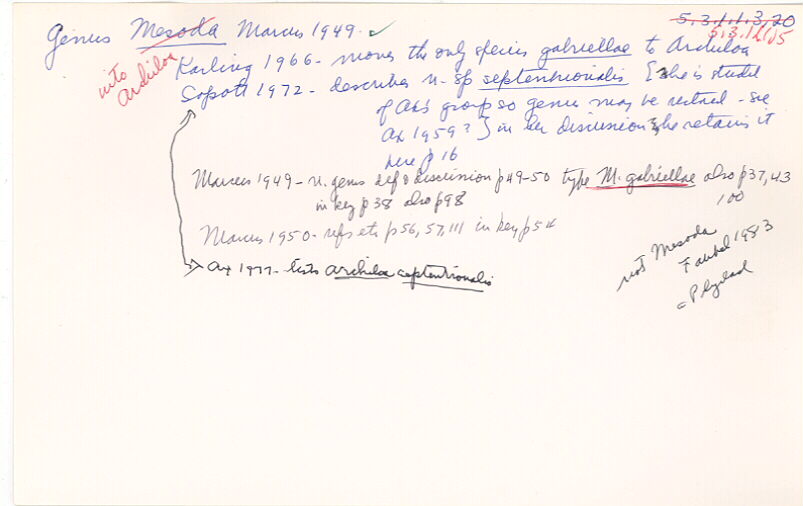 5.3.1.1.3.20
5.3.1.1.15
Genus Mesoda Marcus 1949. ✓
into Archiloa
Karling 1966 - moves the only species gabriellae to Archiloa
Sopott 1972 - describes n. sp septentrionalis [she is student
of Ax's group so genus may be retained - see
Ax 1959?] in her discussion she retains it
here p 16
Marcus 1949 - n. genus def & discussion p 49-50 type M. gabriellae also p 37, 43
in key p 38 also p 98 100
Marcus 1950 - refs etc p 56, 57, 111 in key p 54
Ax 1977 - lists Archiloa septentrionalis
not Mesoda
Faubel 1983
= Polyclad